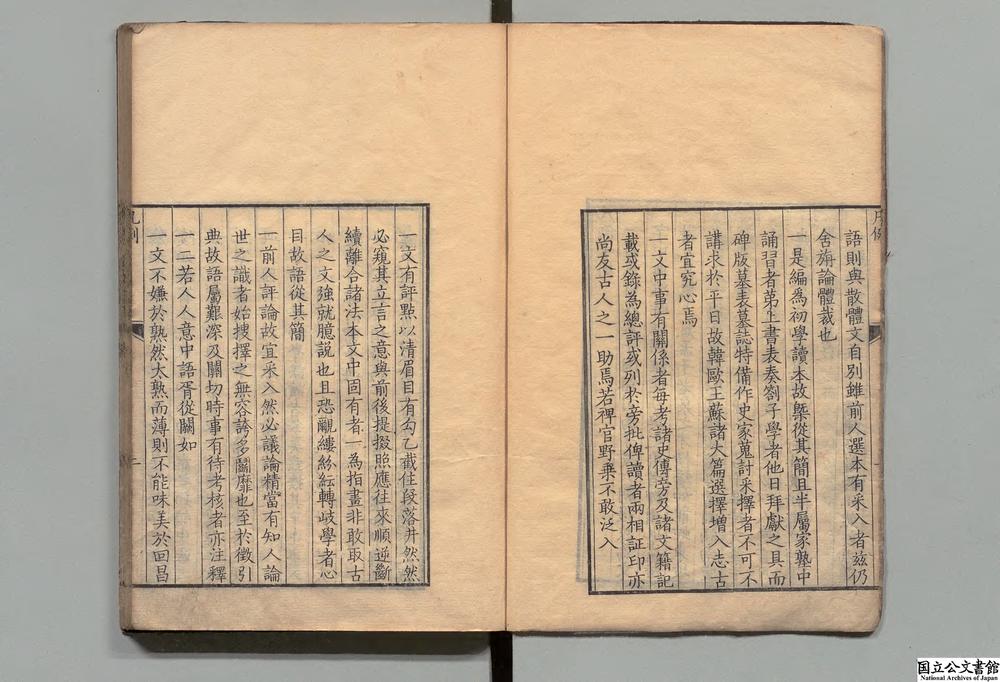 語則與散體文自別雖前人選本有采入者茲仍
舍旃論體裁也
一是編爲初學讀本故槩從其簡且半屬家塾中
誦習者弟上書表奏劄子學者他日拜獻之具而
碑版墓表墓誌特備作史家蒐討采擇者不可不
講求於平日故韓歐王蘇諸大篇選擇增入志古
者宜究心焉
一文中事有關係者每考諸史傳旁及諸文籍記
載或錄為總評或列於旁批俾讀者兩相証印亦
尚友古人之一助焉若稗官野乗不敢泛入
一文有評點以清眉目有勾乙截住段落井然然
必窺其立言之意與前後提掇照應往來順逆斷
續離合諸法本文中固有者一為指畫非敢取古
人之文強就臆說也且恐覼縷紛紜轉岐學者心
目故語從其簡
一前人評論故宜采入然必議論精當有知人論
世之識者始捜擇之無容誇多鬭靡也至於徵引
典故語屬艱深及關切時事有待考核者亦注釋
一二若人人意中語胥從闕如
一文不嫌於熟然大熟而薄則不能味美於回昌
凡例
二
国立公文書館
National Archives of Japan